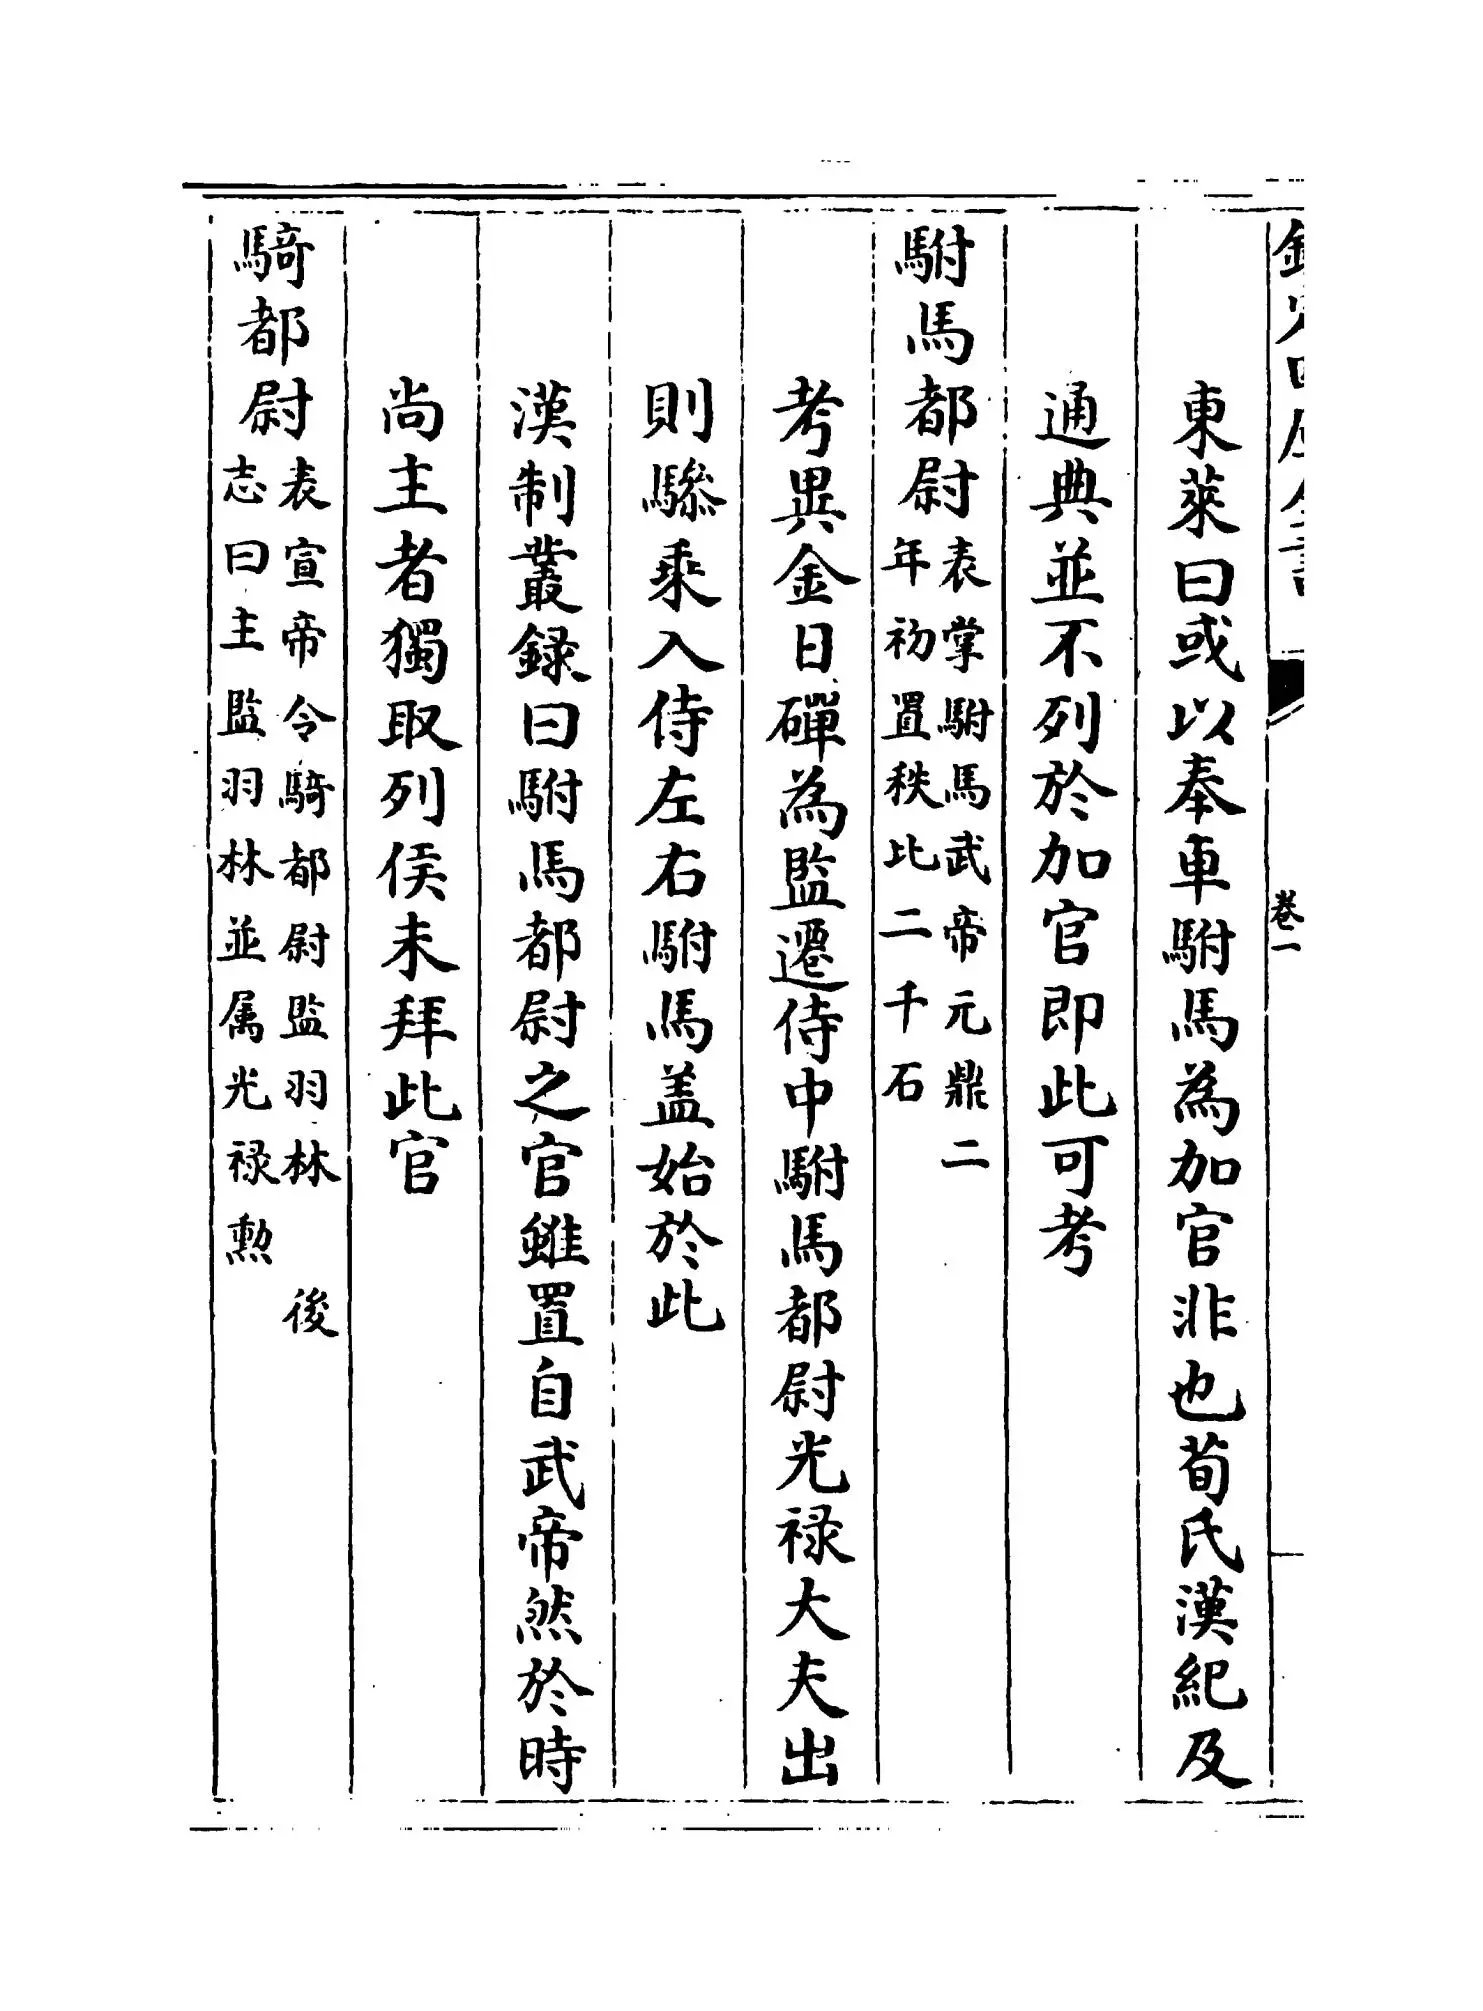 欽定四庫全書
卷一
東萊曰或以奉車駙馬為加官非也荀氏漢紀及
通典並不列於加官即此可考
駙馬都尉表掌駙馬武帝元鼎二
年初置秩比二千石
考異金日磾為監遷侍中駙馬都尉光禄大夫出
則驂乘入侍左右駙馬盖始於此
漢制叢録曰駙馬都尉之官雖置自武帝然於時
尚主者獨取列侯未拜此官
騎都尉表宣帝令騎都尉監羽林 後
志曰主監羽林並属光禄勲